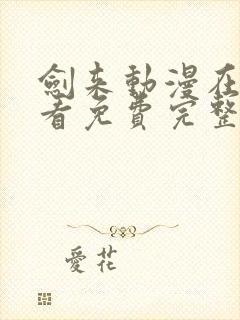 劍来動漫在
看免費完整
愛花